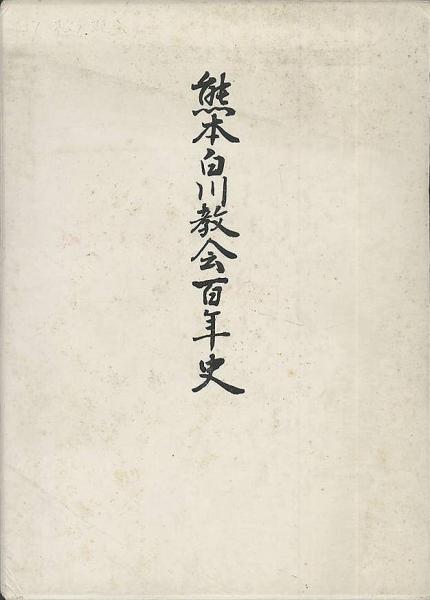 熊本白川教会百年史